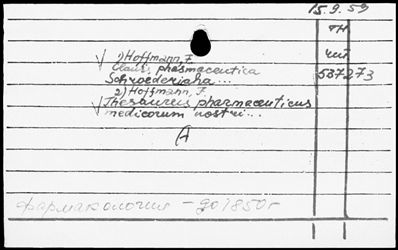 15.9.59
TH
1) Hoffmann, F.
Clavis pharmaceutica
Schroederiana...
587273
2) Hoffmann, F.
Thesaurus pharmaceuticus
medicorum nostri...
A
фармакология - до 1850 г